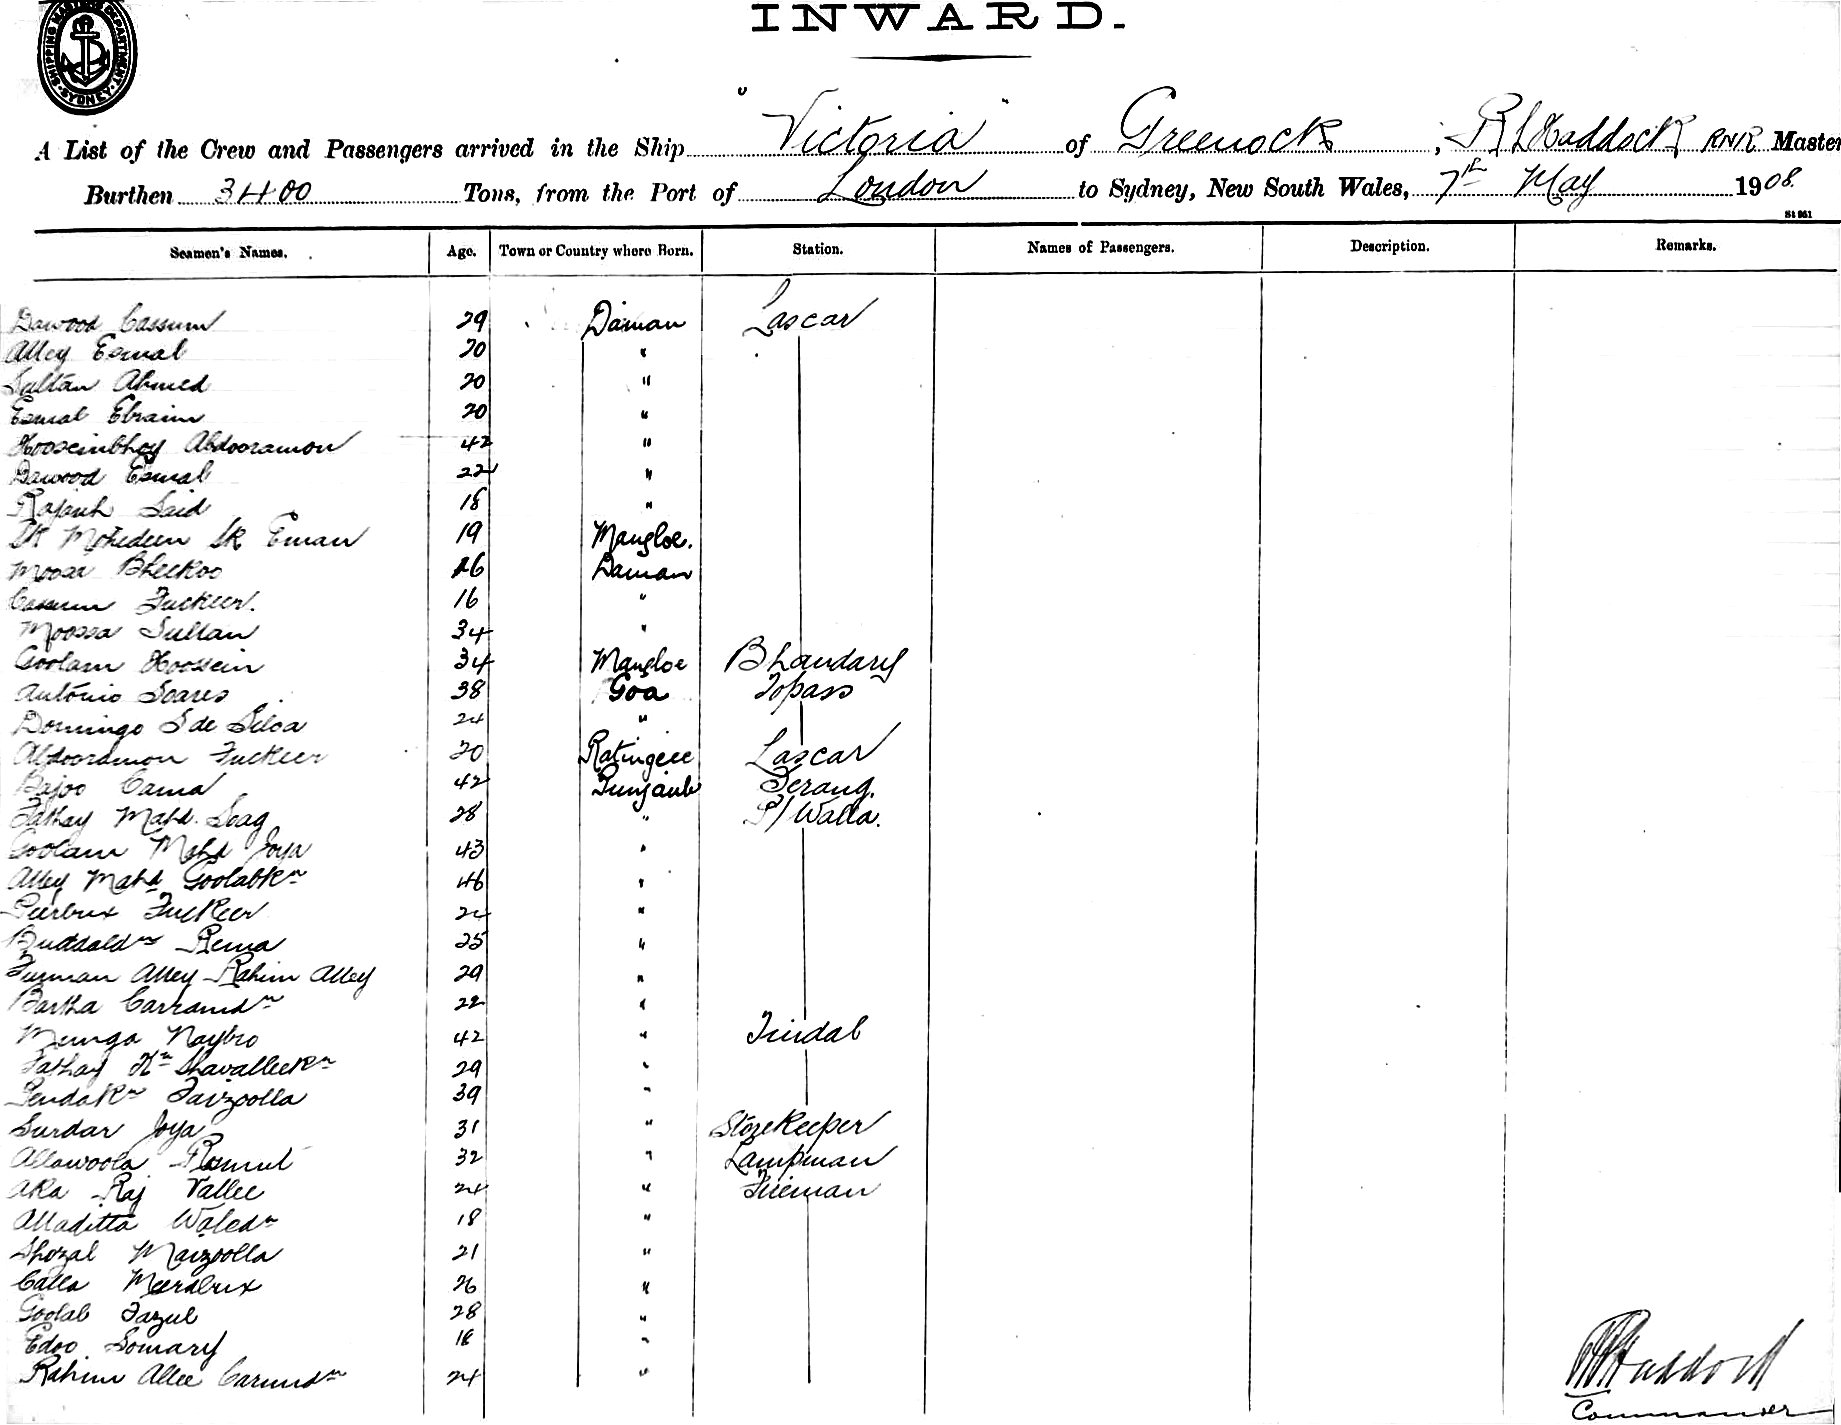 SHIPPING MASTERS DEPARTMENT SYDNEY
INWARD.
A List of the Crew and Passengers arrived in the Ship "Victoria" of Greenock, R L Haddock RNR Master
Burthen 3400 Tons, from the Port of London to Sydney, New South Wales, 7th May 1908.
St 951
Seamen's Names. Age. Town or Country where Born. Station. Names of Passengers. Description. Remarks.
Dawood Cassum 29 Daman Lascar
Alley Esmal 20 "
Sultan Ahmed 20 "
Esmal Ebraim 20 "
Hooseinbhoy Abdooramon 42 "
Dawood Esmal 22 "
Rajauh Said 18 "
Sk Mohedeen Sk Eman 19 Mangloe.
Moosa Bheekoo 26 Daman
Cassum Fuckeer. 16 "
Moossa Sultan 34 "
Goolam Hoossein 34 Mangloe Bhandary
Antonio Soares 38 Goa Topass
Domingo S de Silva 24 "
Abdooramon Fuckeer 20 Ratingeee Lascar
Bajoo Cama 42 Punjaub Serang.
Fathay Mahd. Soag 28 " P/Walla.
Goolam Mahd Joya 43 "
Alley Mahd Goolabkn 46 "
Peerbux Fuckeer 24 "
Buddaldn Rema 25 "
Furman Alley Rahim Alley 29 "
Bartha Carramdn 22 "
Munga Naybo 42 " Tindal
Fathay Kn Shavalleekn 29 "
Pendakn Faizoolla 39 "
Surdar Joya 31 " Storekeeper
Allawoola Rosmut 32 " Lampman
Aka Raj Vallee 24 " Fireman
Alladitta Waledn 18 "
Shozal Maizoolla 21 "
Calla Meerabux 26 "
Goolab Fazul 28 "
Edoo Somary 18 "
Rahim Allee Carimdn 24 "
R L Haddock
Commander